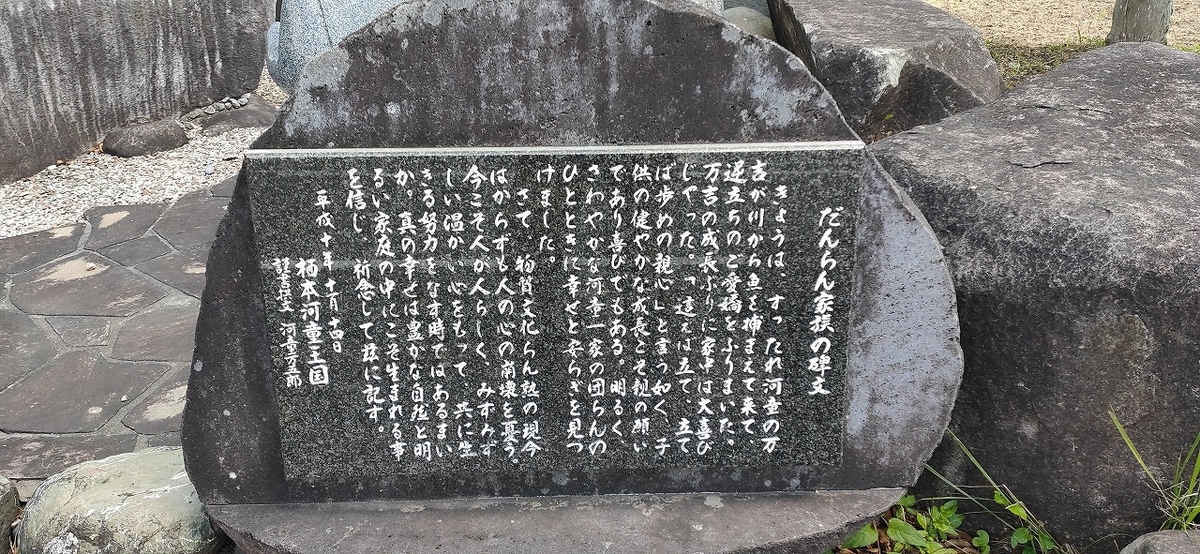 だんらん家族の碑文
きょうは すったれ河童の万
吉が川から魚を捕まえて来て、
逆立ちのご愛嬌をふりまいた。
万吉の成長ぶりに家中は大喜び
じゃった。「這えば立て 立て
ば歩めの親心」と言う如く、子
供の健やかな成長こそ親の願い
であり喜びでもある。明るく
さわやかな河童一家の団らんの
ひとときに幸せと安らぎを見つ
けました。
さて、物質文化らん熟の現今
はからずも人の心の崩壊を憂う。
今こそ人が人らしく、みずみず
しい温かい心をもって、共に生
きる努力をなす時ではあるまい
か。真の幸せは豊かな自然と明
るい家庭の中にこそ生まれる事
を信じ、祈念して茲に記す。
平成十年十月十四日
栖本河童王国